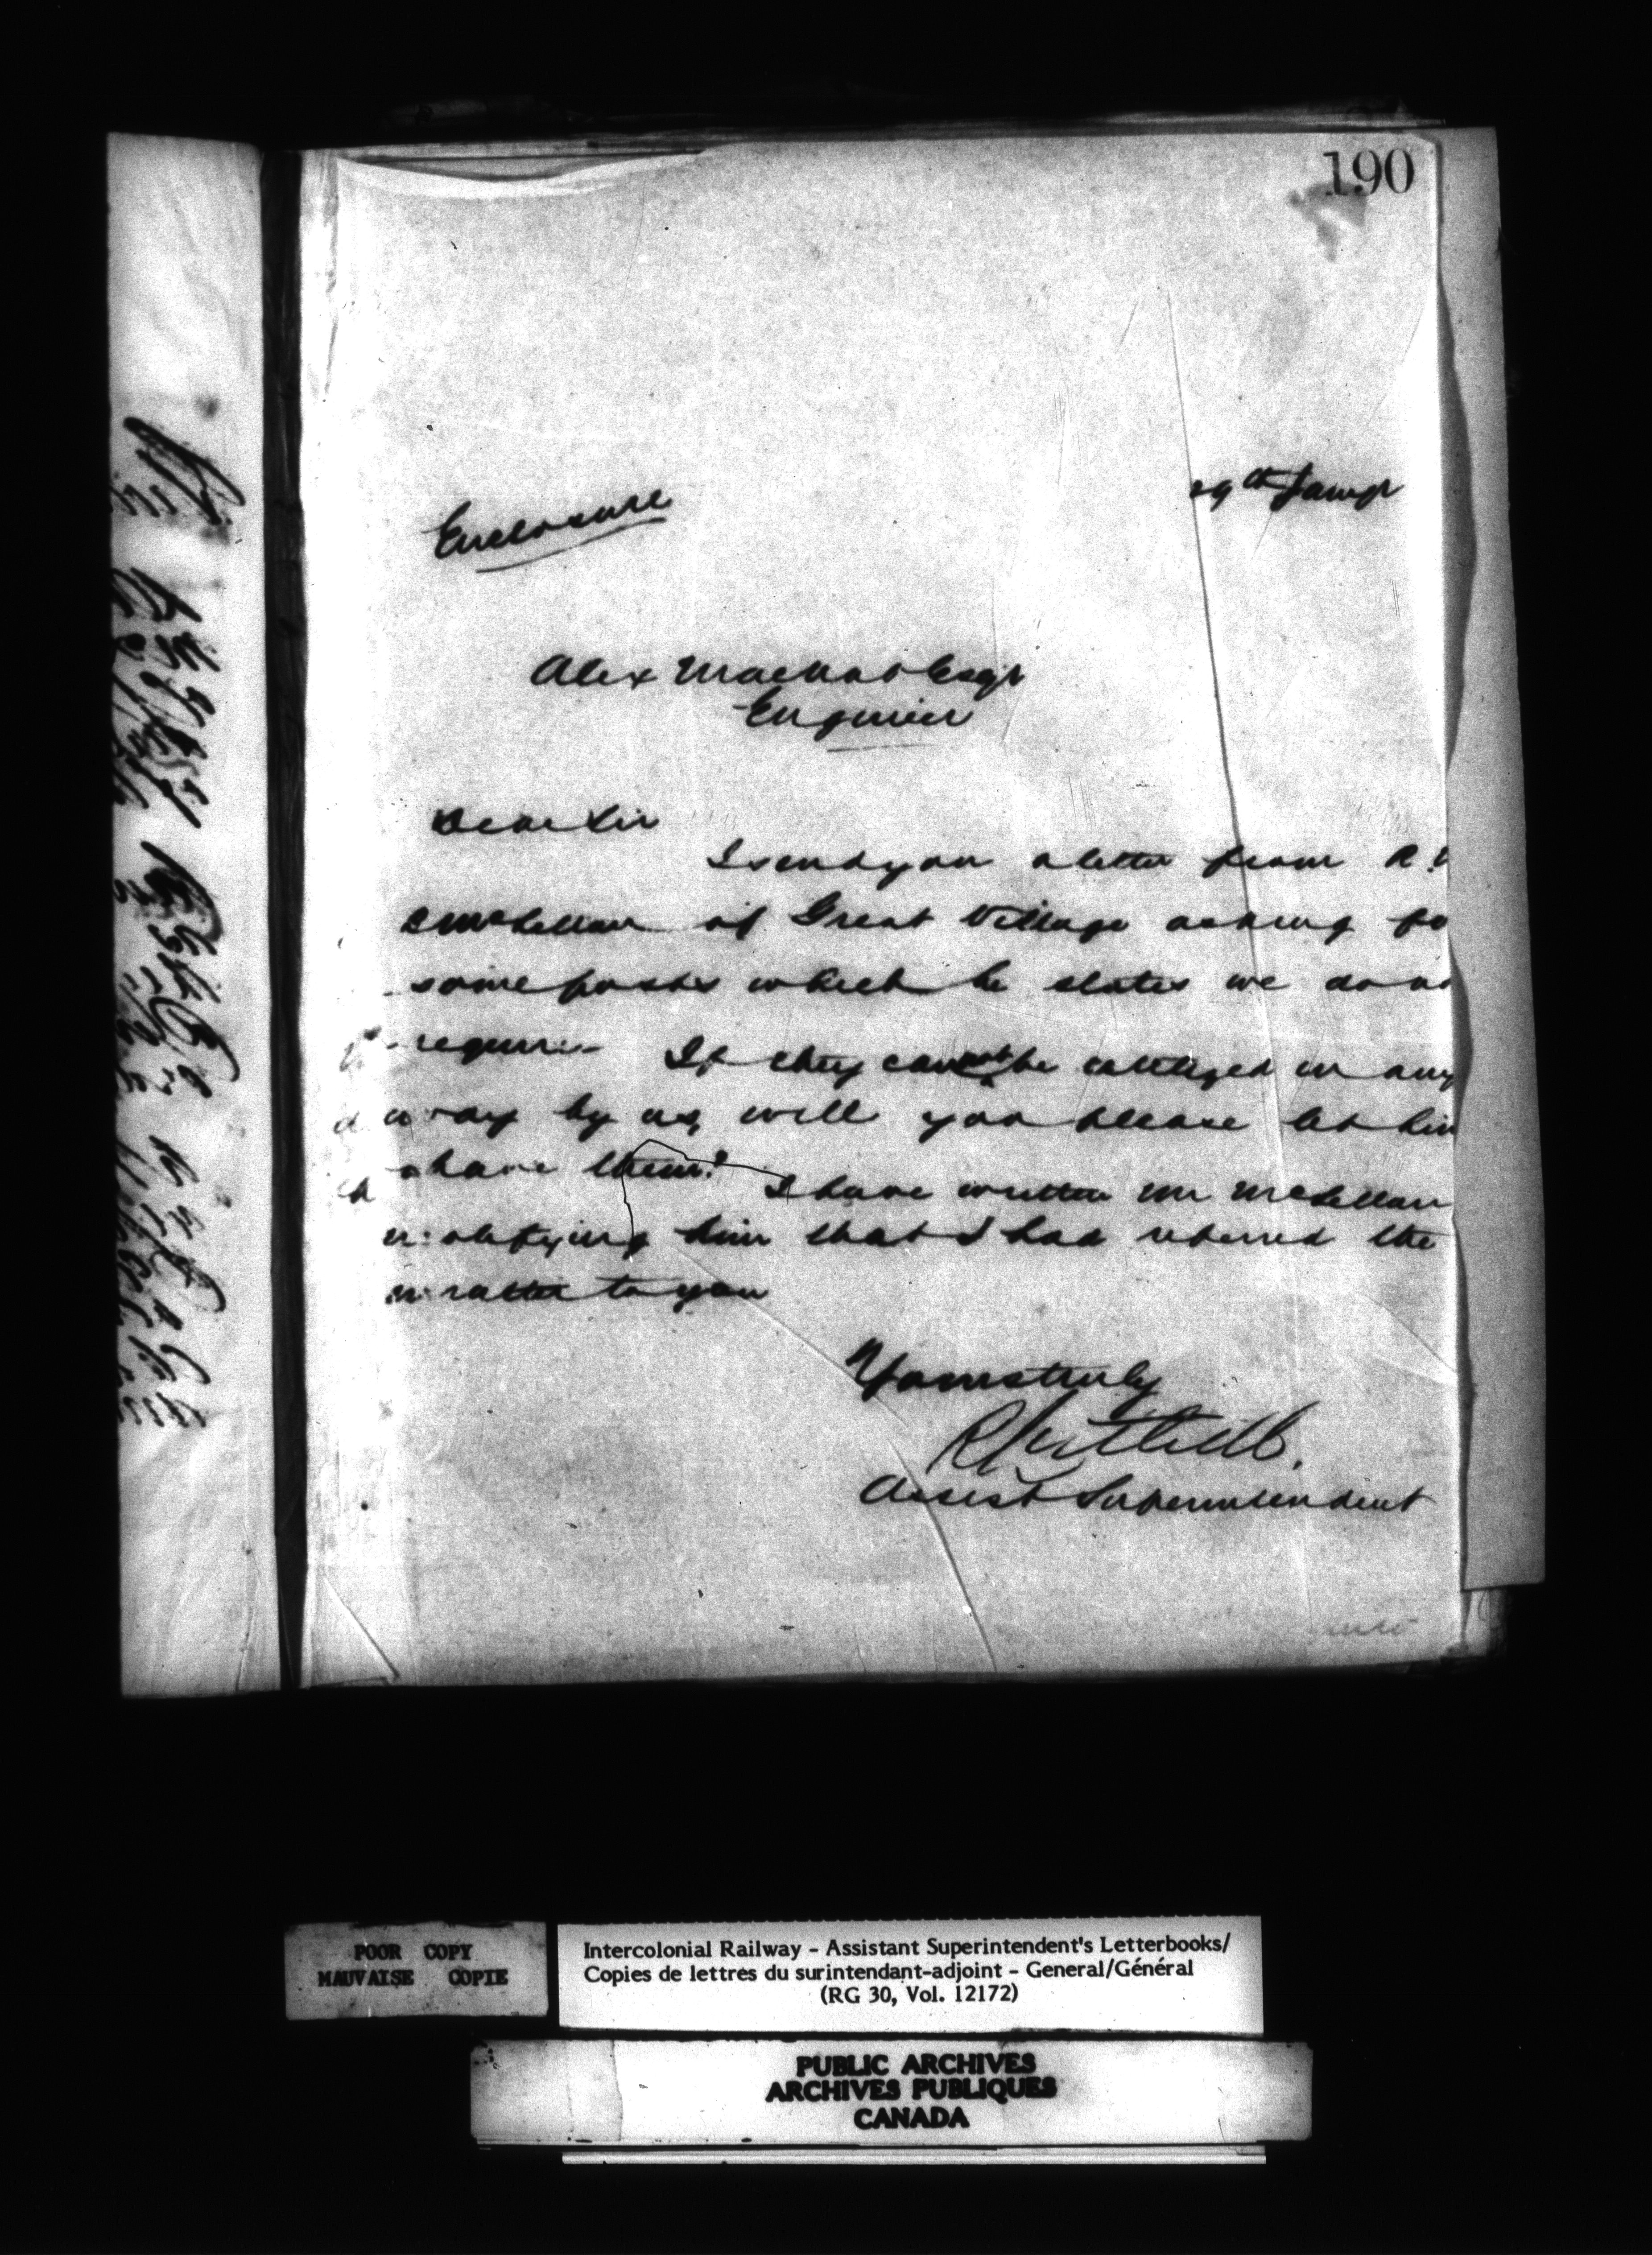 190
29th Jany
Enclosure
Alex MacNab Esqr
Engineer
Dear Sir
I send you a letter from R.
McLellan of Great Village asking fo
some posts which he states we dont
require If they cannot be utilized in any
way by us, will you please let him
have them? I have written Mr McLellan
notifying him that I had referred the
matter to you
Yours truly
Assist Superintendent
POOR COPY
MAUVAISE COPIE
Intercolonial Railway - Assistant Superintendent's Letterbooks/
Copies de lettres du surintendant-adjoint - General/Général
(RG 30, Vol. 12172)
PUBLIC ARCHIVES
ARCHIVES PUBLIQUES
CANADA